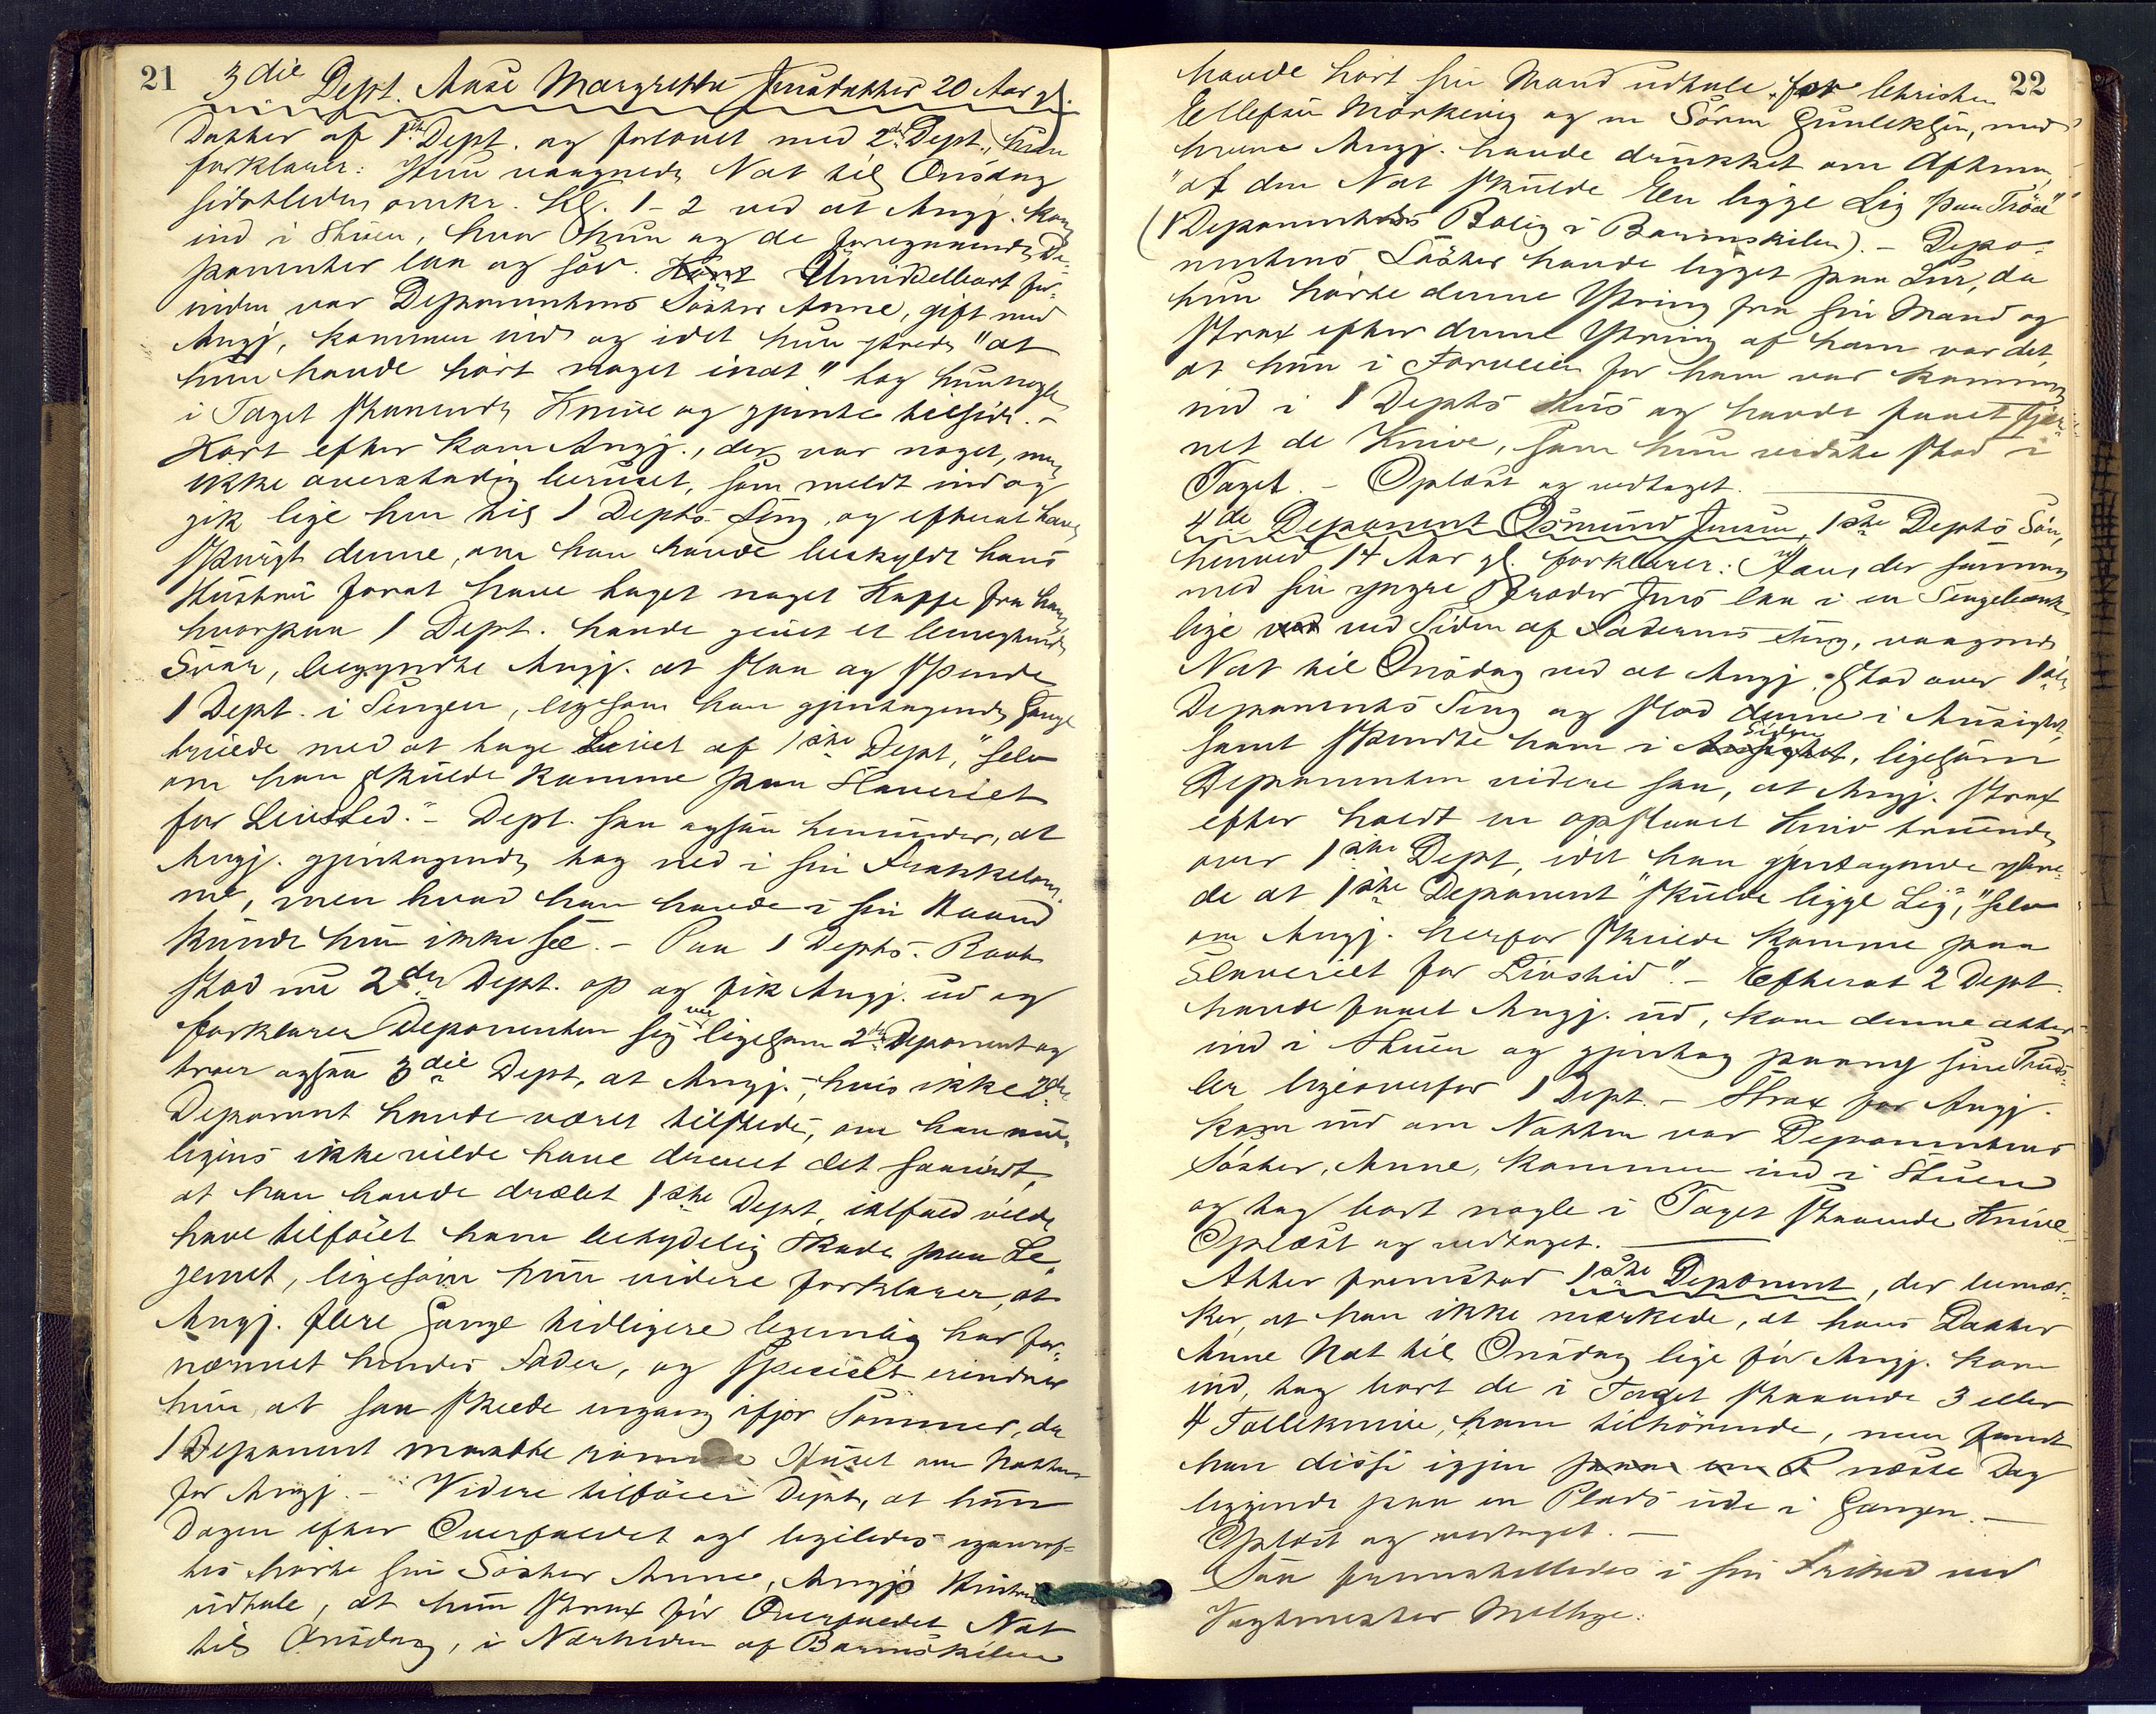 21
3die Dept. Anne Margrethe Jensdatter 20 Aar gl.
Datter af 1ste Dept. og forlovet med 2den Dept., hun
forklarer: Hun vaagnede Nat til Onsdag
sidstleden omkr. Kl. 1-2 ved at Angj. kom
ind i Stuen, hvor hun og de foregaaende De-
ponenter laa og sov. Umiddelbart for-
inden var Deponentens Søster Anne, gift med
Angj, kommen ind og idet hun ytrede "at
hun havde hørt noget inat" tog hun nogle
i Taget staaende Knive og gjemte tilside.-
Kort efter kom Angj., der var noget, men
ikke overstadig beruset, som meldt ind og
gik lige hen til 1 Depts Seng, og efterat have
spurgt denne, om han havde beskyldt hans
Hustru forat have taget noget Kaffe fra ham,
hvorpaa 1 Dept. havde givet et benegtende
Svar, begyndte Angj. at slaa og spænde
1 Dept. i Sengen, ligesom han gjentagende Gange
truede med at tage Livet af 1ste Dept, "selv
om han skulde komme paa Slaveriet
for Livstid." - Dept. saa ogsaa herunder, at
Angj. gjentagende tog ned i sin Frakkelom-
me, men hvad han havde i sin Haand
kunde hun ikke se. - Paa 1 Depts. Raab
stod nu 2den Dept. op og fik Angj. ud og
forklarer Deponenten sig nu ligesom 2den Deponent og
troer ogsaa 3die Dept, at Angj., hvis ikke 2den
Deponent havde været tilstede, om han mu-
ligens ikke vilde have drevet det saavidt,
at han havde dræbt 1ste Dept, ialfald vilde
have tilføiet ham betydelig Skade paa Le-
gemet, ligesom hun videre forklarer, at
Angj. flere Gange tidligere legemlig har for-
nærmet hendes Fader, og specielt erindrer
hun, at saa skede engang ifjor Sommer, da
1 Deponent maatte rømme Huset om Natten
for Angj. - Videre tilføier Dept, at hun
Dagen efter Overfaldet
hørte sin Søster Anne, Angjs Hustru
udtale, at hun strax før Overfaldet Nat
til Onsdag, i Nærheden af Barmskilen
22
havde hørt sin Mand udtale for Christen
Ellefsen Mørkevig og en Søren Gunleksen, med
hvem Angj. havde drukket om Aftenen,
"at den Nat skulde En ligge Lig paa Trøa"
(1 Deponentens Bolig i Barmskilen). - Depo-
nentens Søster havde ligget paa Lur, da
hun hørte denne Ytring fra sin Mand og
strax efter denne Ytring af ham var det,
at hun i Forveien for ham var kommen
ind i 1 Depts Hus og havde faaet fjer-
net de Knive, som hun vidste stod i
Taget. - Oplæst og vedtaget.
4de Deponent Osmund Jensen, 1ste Depts Søn,
henved 14 Aar gl. forklarer: Han, der sammen
med sin yngre Broder Jens laa i en Sengebænk
lige ved Siden af Faderens Seng, vaagnede
Nat til Onsdag ved at Angj. stod over 1ste
Deponents Seng og slog denne i Ansigtet,
samt spændte ham i Siden, ligesom
Deponenten videre saa, at Angj. strax
efter holdt en opslaaet Kniv truende
over 1ste Dept, idet han gjentagende ytre-
de at 1ste Deponent "skulde ligge Lig", "selv
om Angj. herfor skulde komme paa
Slaveriet for Livstid". - Efterat 2 Dept.
havde faaet Angj. ud, kom denne atter
ind i Stuen og gjentog paany sine Trus-
ler ligeoverfor 1 Dept. - Strax før Angj.
kom ind om Natten var Deponentens
Søster, Anne, kommen ind i Stuen
og tog bort nogle i Taget staaende Knive.
Oplæst og vedtaget.
Atter fremstod 1ste Deponent, der bemær-
ker, at han ikke mærkede, at hans Datter
Anne Nat til Onsdag lige før Angj. kom
ind, tog bort de i Taget staaende 3 eller
4 Tolleknive, ham tilhørende, men fandt
han disse igjen næste Dag
liggende paa en Plads ude i Gangen. -
Oplæst og vedtaget. -
Saa fremstilledes i sin Frihed ved
Vagtmester